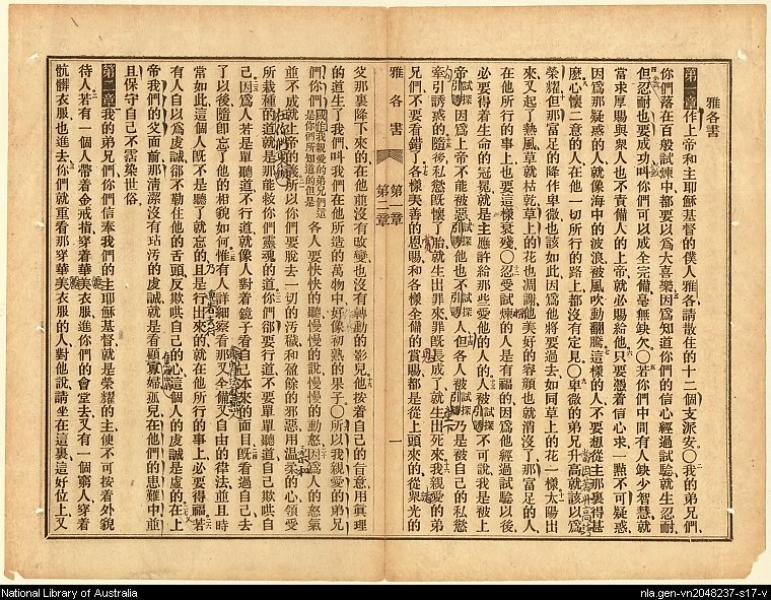 雅各書
第一章作上帝和主耶穌基督的僕人雅各請散住的十二個支派安〇我的弟兄們
你們落在百般試煉中都要以爲大喜樂因爲知道你們的信心經過試驗就生出忍耐
但忍耐也要成功叫你們可以成全完備毫無缺欠〇若你們中間有人缺少智慧就
當求厚賜與衆人也不責備人的上帝就必賜給他只要憑着信心求一點不可疑惑
因爲那疑惑的人就像海中的波浪被風吹動翻騰這樣的人不要想從主那裏得甚
麽心懷二意的人在他一切所行的路上都沒有定見〇卑微的弟兄升高就該以爲
榮耀但那富足的降作卑微也該如此因爲他將要過去如同草上的花一樣太陽出
來又起了熱風草就枯乾草上的花也凋謝他美好的容顏也就消沒了那富足的人
在他所行的事上也要這樣衰殘〇忍受試煉的人是有福的因爲他經過試驗以後
必要得着生命的冠冕就是主應許給那些愛他的人的人被引誘不可說我是被上
帝引誘因爲上帝不能被惡引誘他也不引誘人但各人被引誘乃是被自己的私慾
牽引誘惑的隨後私慾旣懷了胎就生出罪來罪旣長成了就生出死來我親愛的弟
兄們不要看錯了各樣美善的恩賜和各樣全備的賞賜都是從上頭來的從衆光的
雅各書 第一章 第二章 一
父那裏降下來的在他並沒有改變也沒有轉動的影兒他按着自己的旨意用眞理
的道生了我們叫我們在他所造的萬物中好像初熟的果子〇所以我親愛的弟兄
們你們 各人要快快的聽慢慢的說慢慢的動怒因爲人的怒氣
並不成就上帝的義所以你們要脫去一切的污穢和盈餘的邪惡用溫柔的心領受
所栽種的道就是那能救你們靈魂的道你們都要行道不要單單聽道自己欺哄自
己因爲人若是單聽道不行道就像人對着鏡子看自己本來的面目旣看過自己去
了以後隨卽忘了他的相貌如何惟有人詳細察看那又全備又自由的律法並且時
常如此這個人旣不是聽了就忘的且是行出來的就在他所行的事上必要得福若
有人自以爲虔誠卻不勒住他的舌頭反欺哄自己的心這個人的虔誠是虛的在上
帝我們的父面前那淸潔沒有玷汚的虔誠就是看顧寡婦孤兒在他們的患難中並
且保守自己不霑染世俗
第二章我的弟兄們你們信奉我們的主耶穌基督就是榮耀的主便不可按着外貌
待人若有一個人帶着金戒指穿着華美衣服進你們的會堂去又有一個窮人穿着
骯髒衣服也進去你們就重看那穿華美衣服的人對他說請坐在這裏這好位上又
National Library of Australia
nla.gen-vn2048237-s17-v